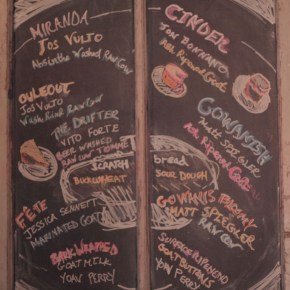 MIRANDA
JOS VULTO
Absinthe Washed Raw Cow
OULEOUT
JOS VULTO
Wash Rind Raw Cow
THE DRIFTER
VITO FORTE
BEER WASHED
RAW COW TOMME
SCRATH
BUCKWHEAT
FÊTE
JESSICA SENNETT
MARINATED GOAT
BARK WRAPPED
GOAT MILK
YOAN PERRY
CINDER
JON BONANNO
Ash Ripened Goat
GOWANISH
MATT SPIEGLER
Ash Ripened Goat
bread
SOUR DOUGH
GOWANUS
MATT SPIEGLER
RAW COW
SURFACE RIPENED
GOAT BUTTONS
YOAN PERRY